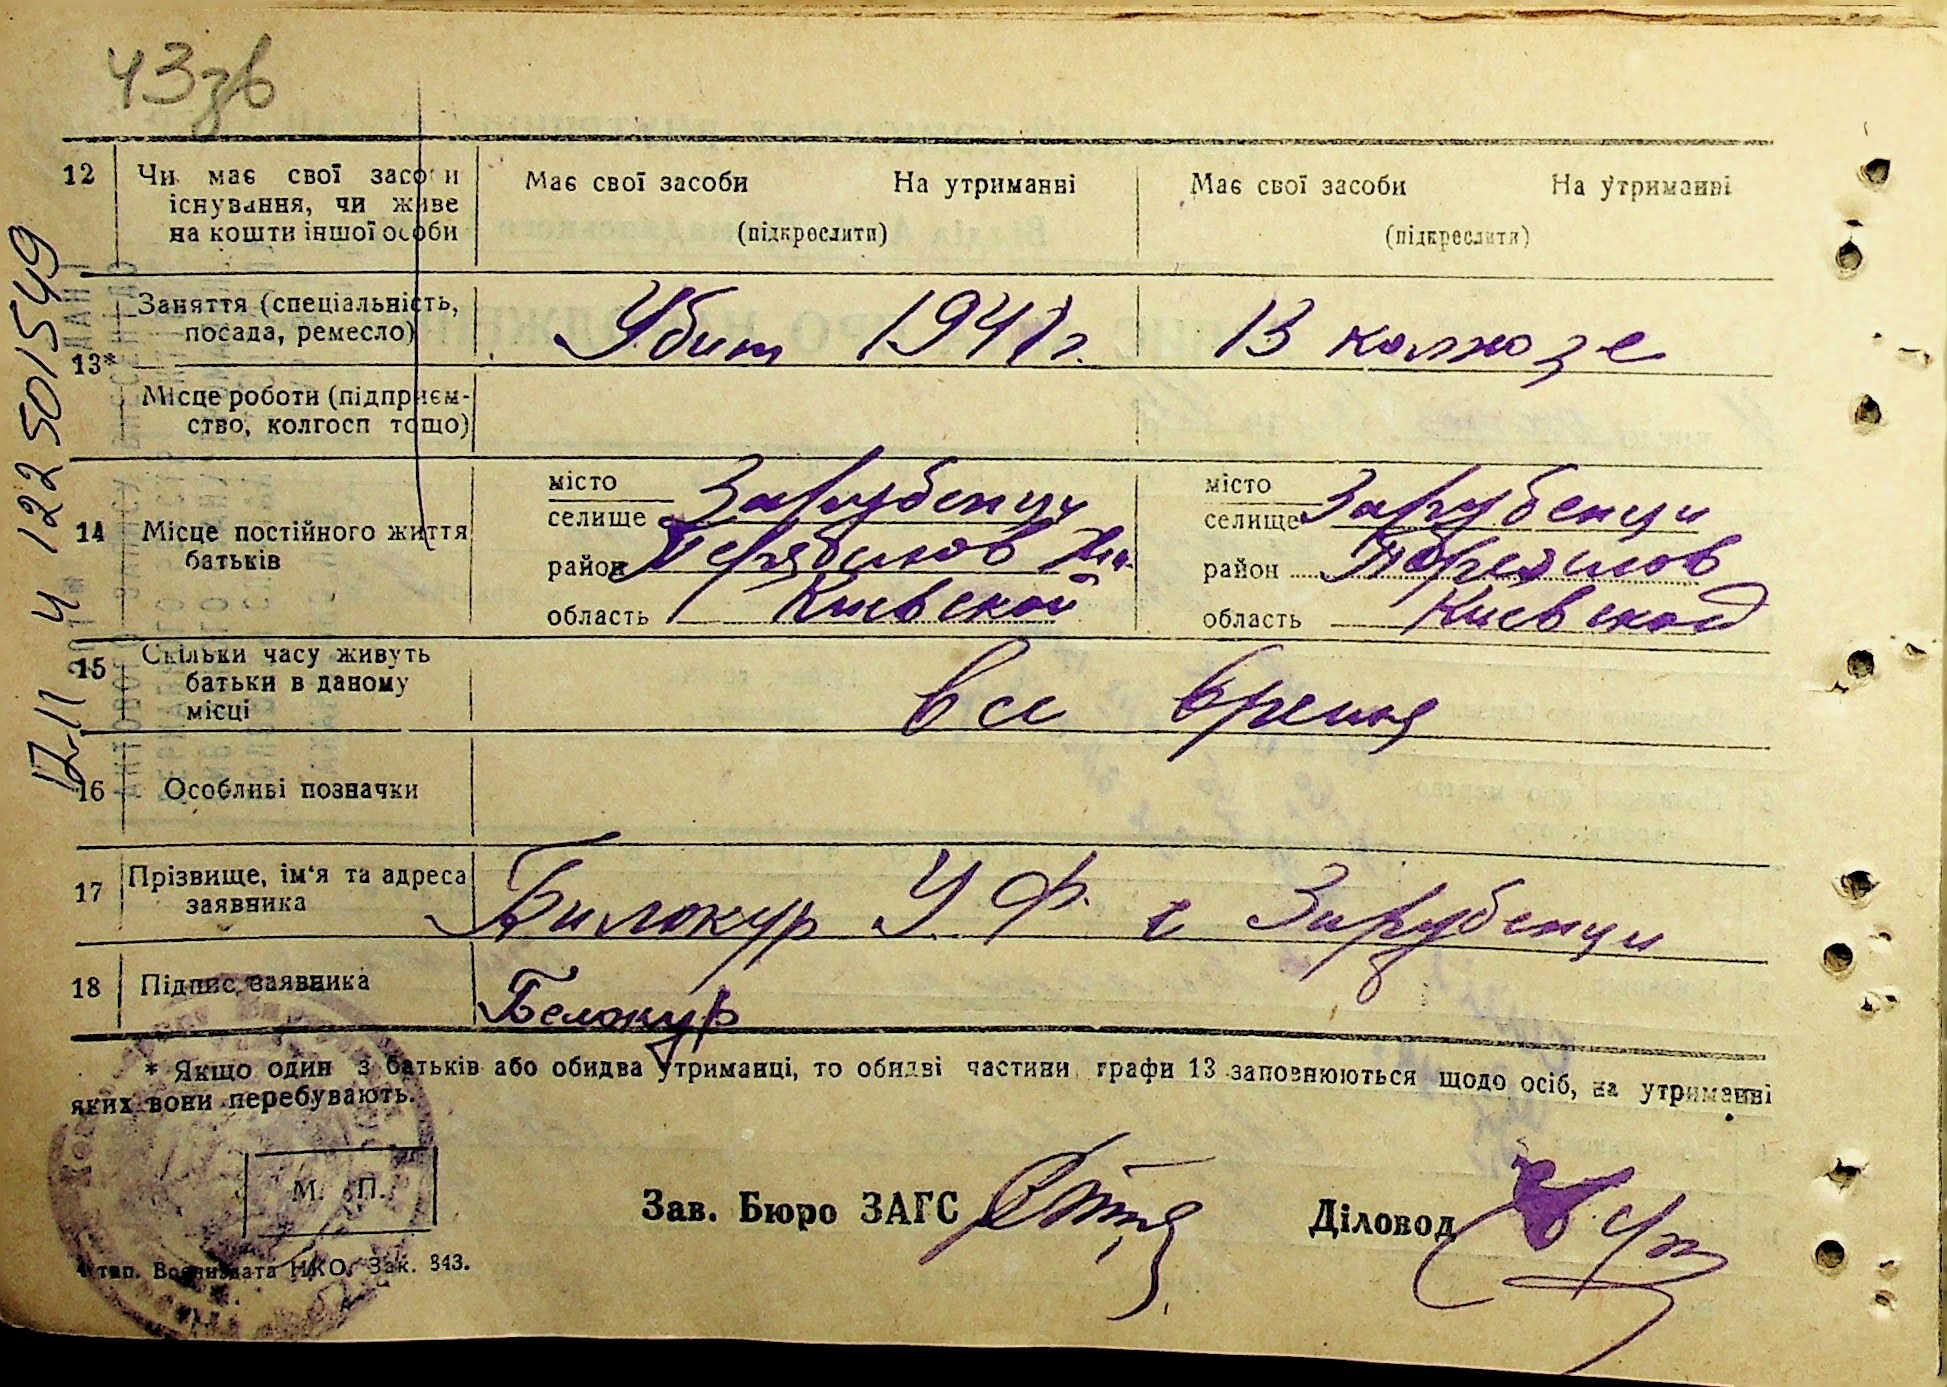 43зв
12 Чи має свої засоби Має свої засоби На утриманні Має свої засоби На утриманні
існування, чи живе
на кошти іншої особи (підкреслити) (підкреслити)
Заняття (спеціальність,
посада, ремесло) Убит 1941 г. В колхозе
13*
Місце роботи (підприєм-
ство, колгосп тощо)
місто місто
селище Зарубенци селище Зарубенци
14 Місце постійного життя
батьків район район
область Киевской область Киевской
15 Скільки часу живуть
батьки в даному все время
місці
16 Особливі позначки
17 Прізвище, ім'я та адреса
заявника Билокур У Ф. с Зарубенци
18 Підпис заявника Белокур
* Якщо один з батьків або обидва утриманці, то обидві частини графи 13 заповнюються щодо осіб, на утриманні
яких вони перебувають.
М. П.
Зав. Бюро ЗАГС Діловод
тип. Воениздата НКО. Зак. 343.
12-11 4 122 501549